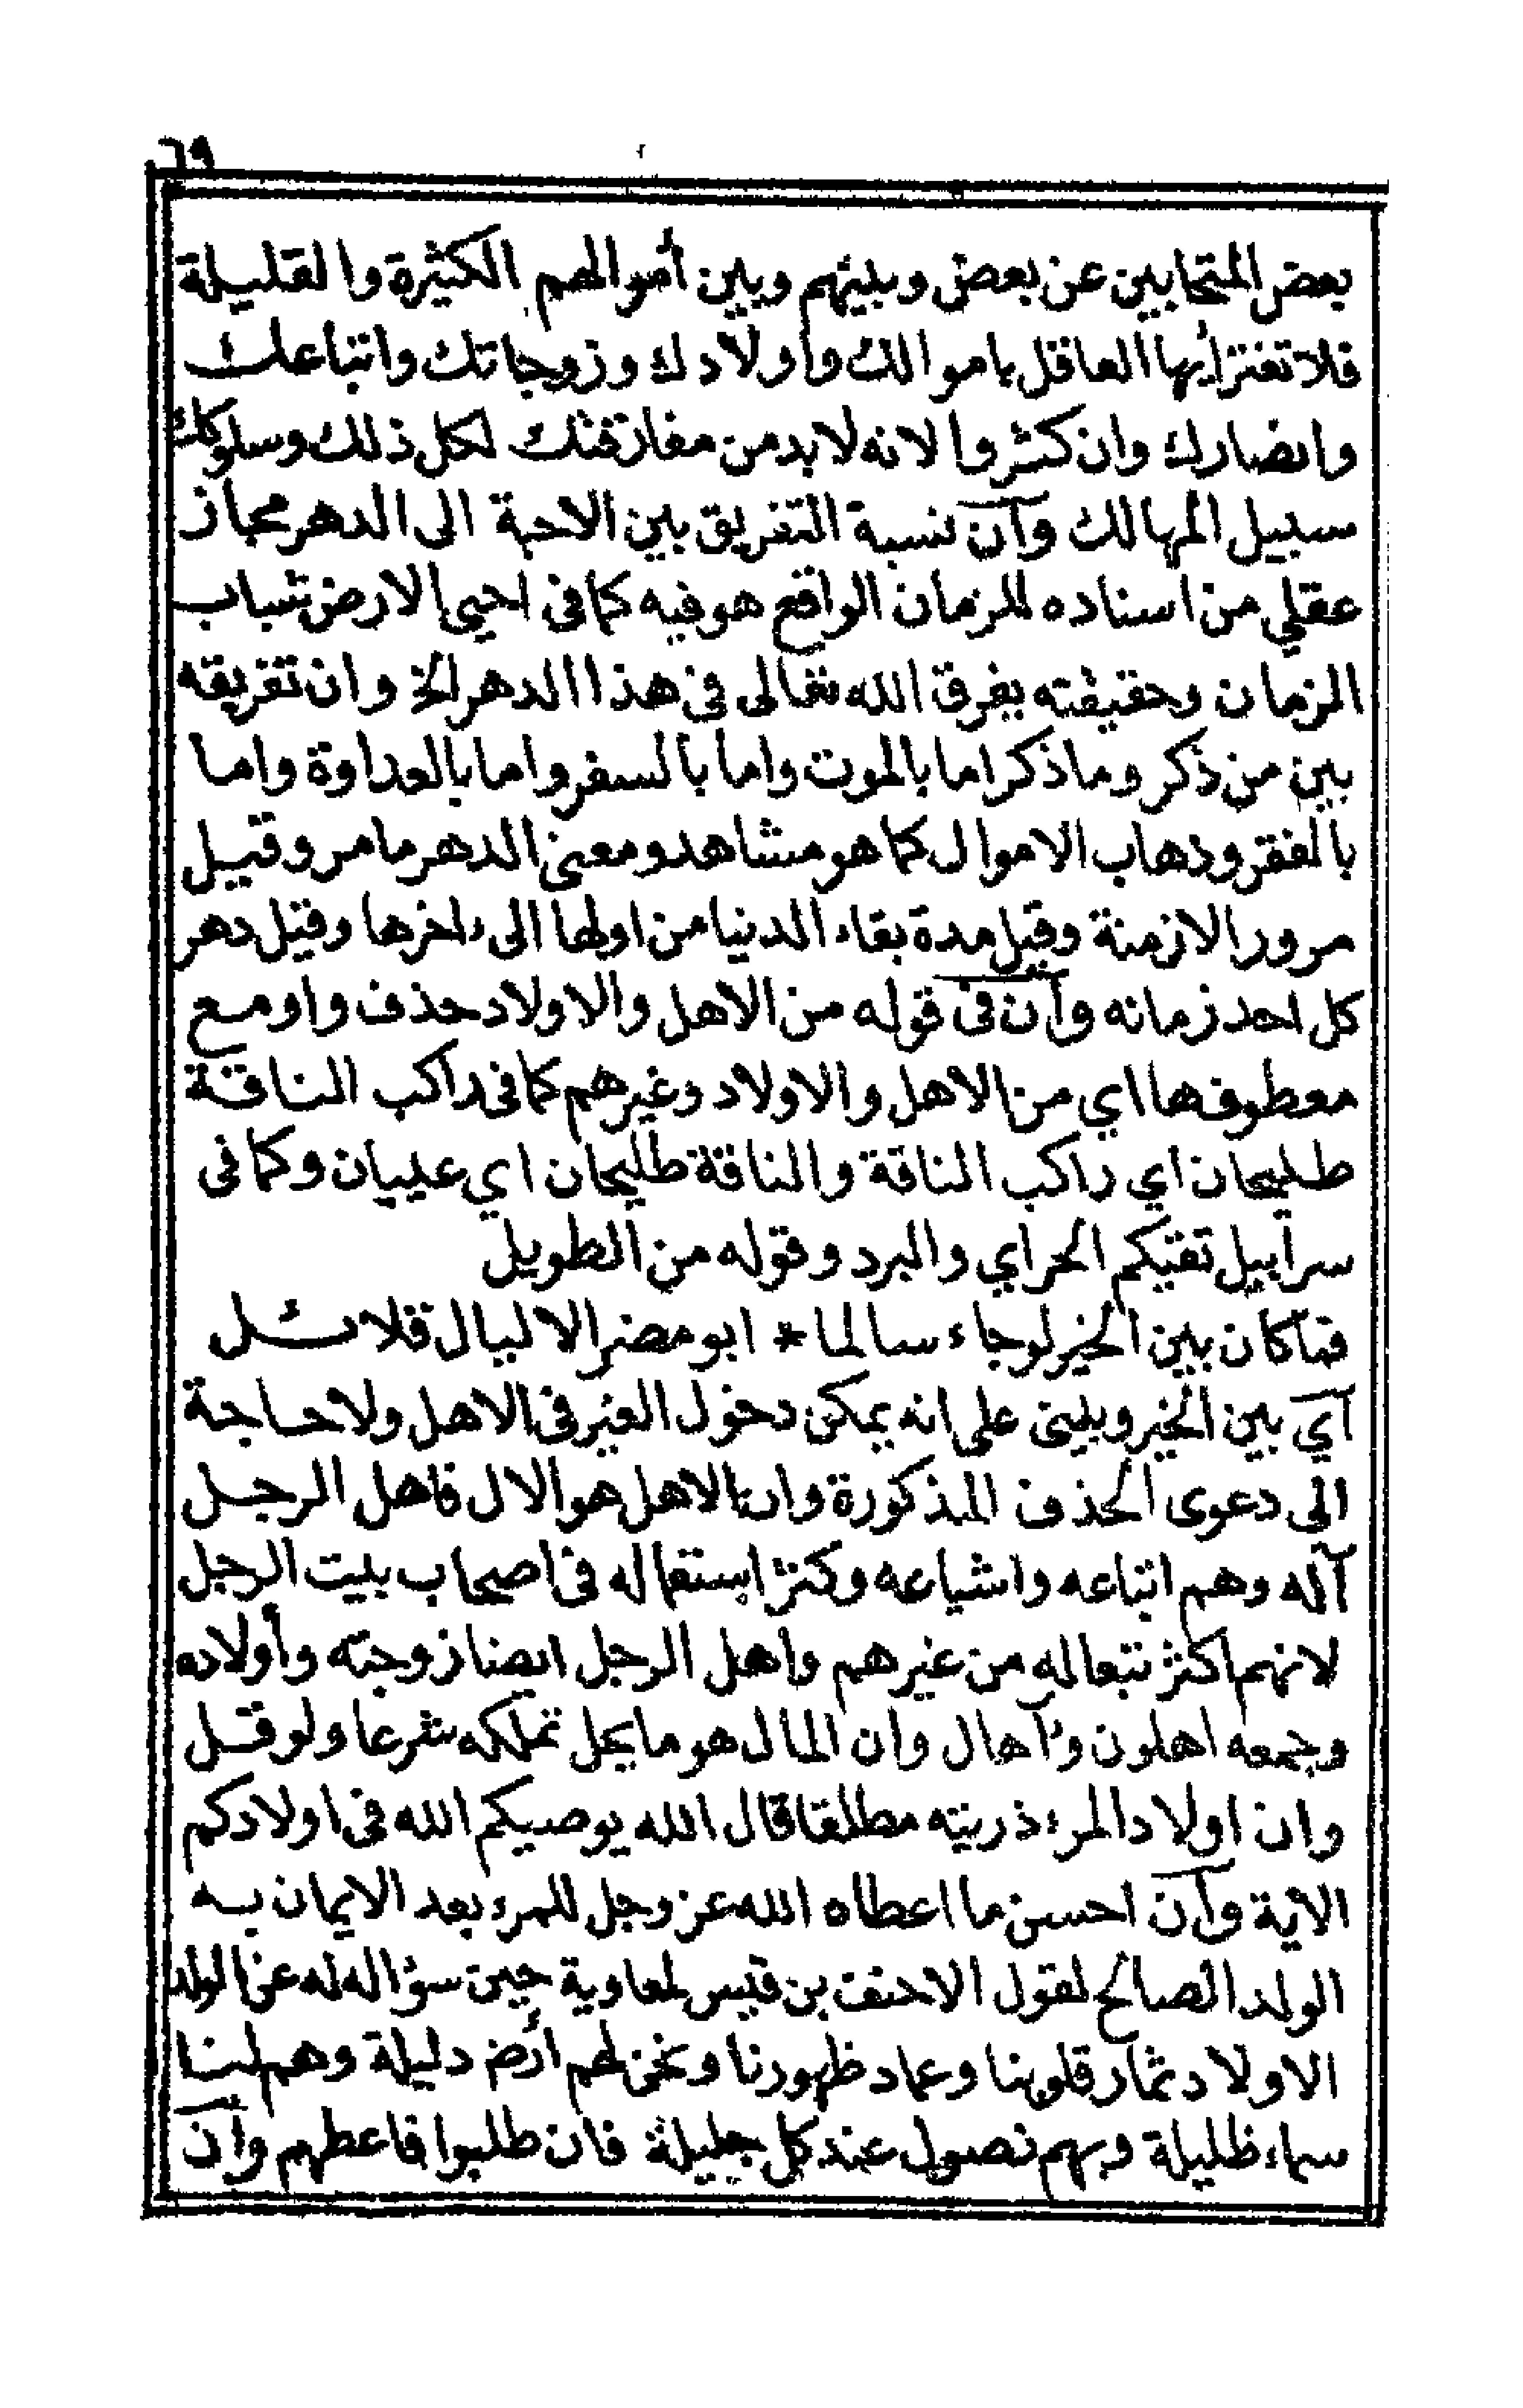 ٦٩
بعض المتحابين عن بعض وبينهم وبين أموالهم الكثيرة والقليلة
فلا تغتر أيها العاقل باموالك واولادك وزوجاتك واتباعك
وانصارك وان كثروا لانه لابد من مفارقتك لكل ذلك وسلوكك
سبيل المهالك وآن نسبة التفريق بين الاحبة الى الدهر مجاز
عقلي من اسناده للزمان الواقع هو فيه كما في احيى الارض شباب
الزمان وحقيقته يفرق الله تعالى في هذا الدهر الخ وان تفريقه
بين من ذكر وما ذكر اما بالموت واما بالسفر واما بالعداوة واما
بالفقر وذهاب الاموال كما هو مشاهد ومعنى الدهر ما مر وقيل
مرور الازمنة وقيل مدة بقاء الدنيا من اولها الى ءاخرها وقيل دهر
كل احد زمانه وآن في قوله من الاهل والاولاد حذف واو مع
معطوفها اي من الاهل والاولاد وغيرهم كما في راكب الناقة
طليحان اي راكب الناقة والناقة طليحان اي عييان وكما في
سرابيل تقيكم الحر اي والبرد وقوله من الطويل
فما كان بين الخير لو جاء سالما * ابو مضر الا ليال قلائل
آي بين الخير وبيني على انه يمكن دخول الغير في الاهل ولا حاجة
الى دعوى الحذف المذكورة وان الاهل هو الال فاهل الرجل
آله وهم اتباعه واشياعه وكثر استعماله في اصحاب بيت الرجل
لانهم اكثر تبعا له من غيرهم واهل الرجل ايضا زوجته وأولاده
وجمعه اهلون وءاهال وان المال هو ما يحل تملكه شرعا ولو قل
وان اولاد المرء ذريته مطلقا قال الله يوصيكم الله في اولادكم
الاية وآن احسن ما اعطاه الله عز وجل للمرء بعد الايمان به
الولد الصالح لقول الاحنف بن قيس لمعاوية حين سؤاله له عن الولد
الاولاد ثمار قلوبنا وعماد ظهورنا ونحن لهم أرض ذليلة وهم لنا
سماء ظليلة وبهم نصول عند كل جليلة فان طلبوا فاعطهم وآن